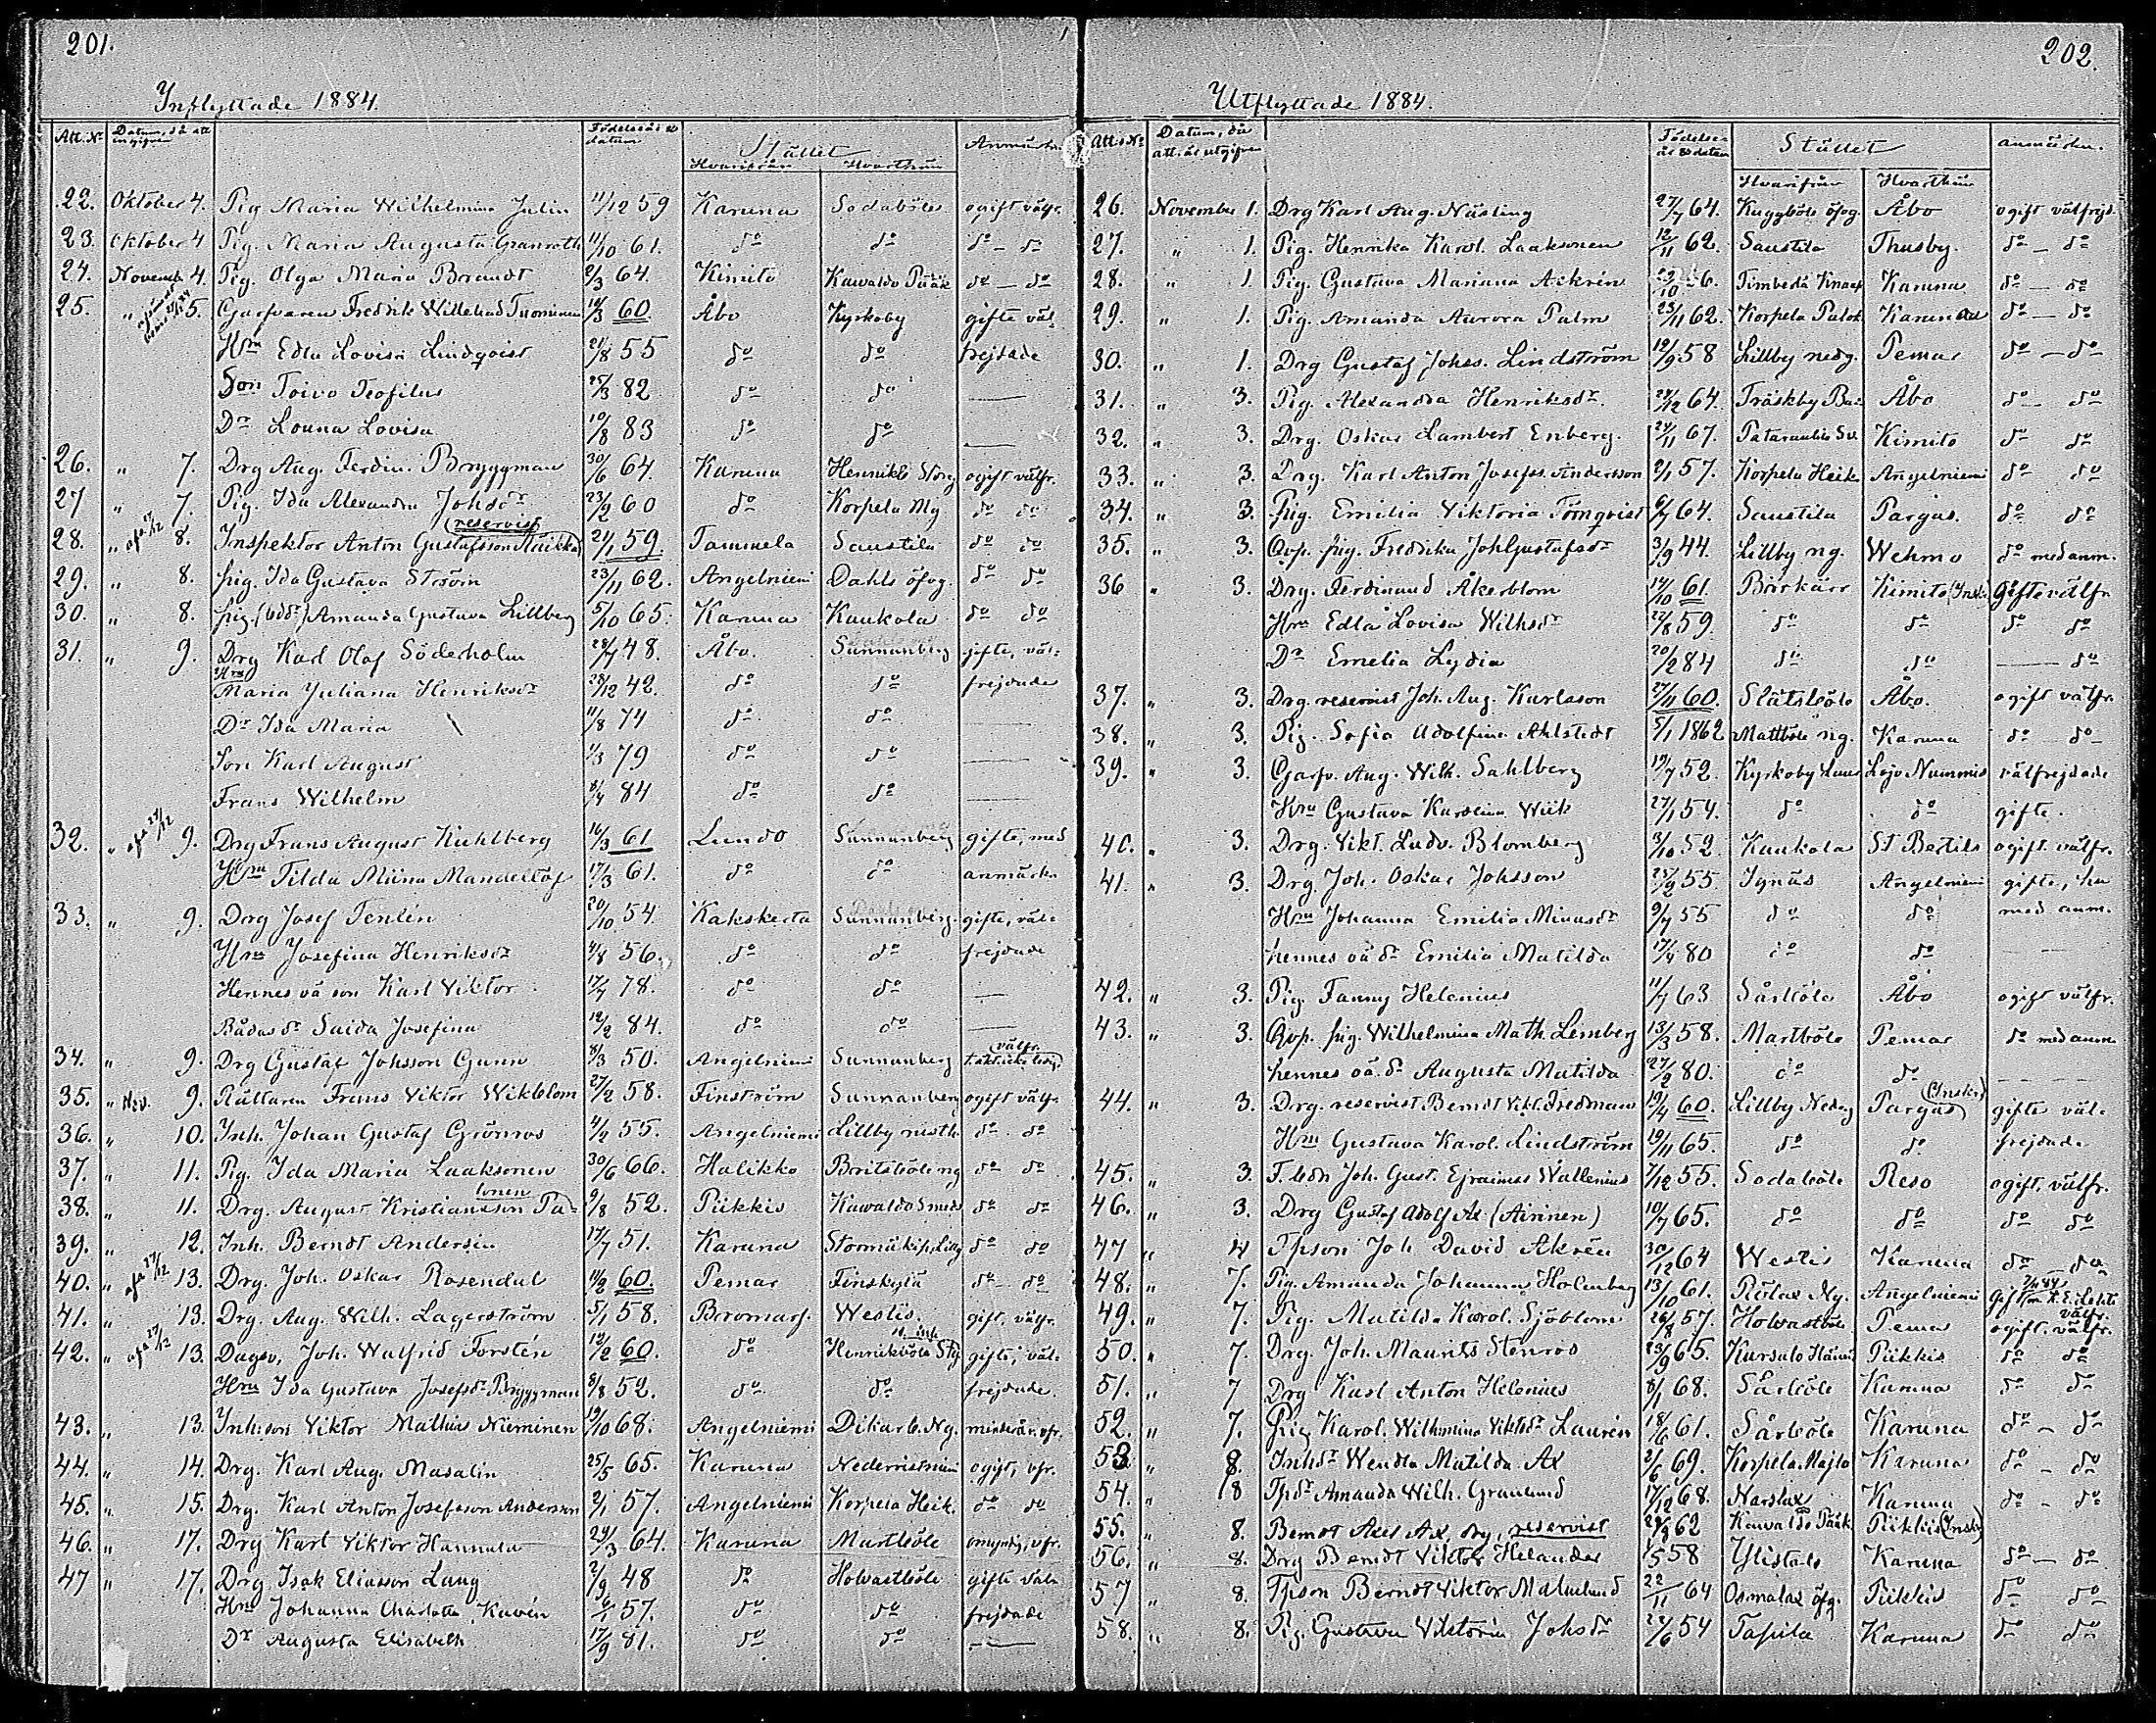 201.
Inflyttade 1884.
Att. No Datum, då att. Födelseår o datum Stället Anmärkn.
Hvarifrån Hvarthän
22. Oktober 4. Pig Maria Wilhelmina Julin 11/12 59 Karuna Sodaböle ogift välfr.
23. Oktober 4 Pig. Maria Augusta Granroth 11/10 61. do do do - do
24. Novemb. 4. Pig. Olga Maria Brandt 2/3 64. Kimito Kawaldo Pääk do - do
25. " 5. Garfvaren Fredrik Willehad Tuominen 10/3 60. Åbo Kyrkoby gifte väl-
Hru Edla Lovisa Lindqvist 21/8 55 do do frejdade
Son Toivo Teofilus 25/3 82 do do —
Dr Louna Lovisa 10/8 83 do do —
26. " 7. Drg Aug. Ferdin. Bryggman 30/6 64. Karuna Henrikb Storg ogift välfr.
27 " 7. Pig. Ida Alexandra Johsdr 23/2 60 do Korpela Mg do do
28. " 8. Inspektor Anton Gustafsson (reservist) 21/1 59. Tammela Saustila do do
29. " 8. pig. Ida Gustava Ström 23/11 62. Angelniemi Dahls öfvg. do do
30. " 8. pig. Amanda Gustava Lillberg 5/10 65. Karuna Kaukola do do
31. " 9. Drg Karl Olof Söderholm 28/7 48. Åbo. Sunnanberg gifte, väl-
Hru Maria Juliana Henriksdr 28/12 42. do do frejdade
Dr Ida Maria 11/8 74 do do —
Son Karl August 1/3 79 do do —
Frans Wilhelm 8/4 84 do do —
32. " 9. Drg Frans August Kuhlberg 16/3 61 Lundo Sunnanberg gifte, med
Hru Tilda Miina Mandellöf 17/3 61. do do anmärkn
33. " 9. Drg Josef Tenlén 20/10 54. Kakskerta Sunnanberg. gifte, väl-
Hru Josefina Henriksdr 4/8 56. do do frejdade
Hennes oä son Karl Viktor 17/7 78. do do —
Bådas dr Saida Josefina 12/2 84. do do —
34. " 9. Drg Gustaf Johsson Gunn 8/3 50. Angelniemi Sunnanberg välfr.
35. " Nov. 9. Rättaren Frans Viktor Wikblom 27/2 58. Finström Sunnanberg ogift välfr.
36. " 10. Inh. Johan Gustaf Grönros 4/2 55. Angelniemi Lillby nisth. do do
37. " 11. Pig. Ida Maria Laaksonen 30/6 66. Halikko Britsböle ng do do
38. " 11. Drg. August Kristiansson Pa-lonen 9/8 52. Piikkis Kawaldo Smeds do do
39. " 12. Inh. Berndt Andersin 17/7 51. Karuna do do
40. " afs 27/12 13. Drg. Joh. Oskar Rosendal 11/2 60. Pemar Finskylä do - do
41. " 13. Drg. Aug. Wilh. Lagerström 5/1 58. Bromarf. Westis. gift, välfr.
42. " afs 27/12 13. Dagsv. Joh. Walfrid Forstén 12/2 60. do Henriksböle Stg gifte, väl-
Hru Ida Gustava Josefsdr Bryggman 8/8 52. do do frejdade.
43. " 13. Inh:son Viktor Mathias Nieminen 19/10 68. Angelniemi Dikarb. Ng. minderår. vfr.
44. " 14. Drg. Karl Aug. Masalin 25/5 65. Karuna Nederristniemi ogift, vfr.
45. " 15. Drg. Karl Anton Josefsson Andersson 2/1 57. Angelniemi Korpela Heik. do do
46. " 17. Drg Karl Viktor Hannula 24/3 64. Karuna Martböle omyndig, vfr.
47 " 17. Drg Isak Eliasson Lang 2/9 48 do Holvastböle gifte väl-
Hru Johanna Charlotta Kavén 6/1 57. do do frejdade
Dr Augusta Elisabeth 17/9 81. do do —
202.
Utflyttade 1884.
Att. No Datum, då att. är utgifven Födelse-år o datum Stället anmärkn.
Hvarifrån Hvarthän
26. November 1. Drg Karl Aug. Näsling 27/7 64. Kuggböle öfvg. Åbo ogift välfrejd.
27. " 1. Pig. Henrika Karol. Laaksonen 12/11 62. Saustila Thusby. do - do
28. " 1. Pig. Gustava Mariana Ackrén Timberdä Knaap Karuna do - do
29. " 1. Pig. Amanda Aurora Palm 23/11 62. Korpela Palok Karuna do - do
30. " 1. Drg Gustaf Johss. Lindström 12/9 58 Lillby nedg. Pemar do - do
31. " 3. Pig. Alexandra Henriksdr. 24/12 64. Träskby Åbo do - do
32. " 3. Drg. Oskar Lambert Enberg. 24/11 67. Kimito do do
33. " 3. Drg. Karl Anton Josefss. Andersson 2/1 57. Korpela Heik. Angelniemi do do
34. " 3. pig. Emilia Viktoria Törnqvist 6/7 64. Saustila Pargas. do do
35. " 3. Qvp. pig. Fredrika Joh Gustafsdr 3/9 44. Lillby ng. Wehmo do med anm.
36 " 3. Drg. Ferdinand Åkerblom 14/10 61. Börkärr Kimito (Insk.) Gifte välfr
Hru Edla Lovisa Wilhsdr 22/8 59. do do do do
Dr Emelia Lydia 20/2 84 do do — do
37. " 3. Drg. reservist Joh. Aug. Karlsson 27/11 60. Slätsböle Åbo. ogift välfr.
38. " 3. Pig. Sofia Adolfina Ahlstedt 5/1 1862 Mattböle ng. Karuna do do
39. " 3. Garfv. Aug. Wilh. Sahlberg 19/7 52. Kyrkoby Lojo Nummis välfrejdade
Hru Gustava Karolina Wiik 27/1 54. do do gifte.
40. " 3. Drg. Vikt. Ludv. Blomberg 3/10 52. Kaukola St Bertils ogift välfr.
41. " 3. Drg Joh. Oskar Johsson 25/2 55. Ignäs Angelniemi gifte, hu
Hru Johanna Emilia Minasdr 9/7 55 do do med anm.
hennes oä dr Emilia Matilda 17/4 80 do do —
42. " 3. Pig. Fanny Helenius 11/7 63 Sårböle Åbo ogift välfr.
43. " 3. Qvp. pig. Wilhelmina Math. Lemberg 13/3 58. Martböle Pemar do med anm.
hennes oä. dr Augusta Matilda 27/2 80. do do — —
44. " 3. Drg. reservist Berndt Vikt. Fredman 19/4 60. Lillby Nedrg Pargas (Inskr) gifte väl-
Hru Gustava Karol. Lindström 19/11 65. do do frejdade
45. " 3. F. bdn Joh. Gust. Efraimss Wallenius 7/12 55. Sodaböle Reso ogift, välfr.
46. " 3. Drg Gustaf Adolf Ax. (Airinen) 10/7 65. do do do do
47 " 4 Tpson Joh. David Akrén 30/12 64 Westis Karuna do do
48. " 7. Pig. Amanda Johanna Holmberg 13/10 61. Rölax Ng. Angelniemi
49. " 7. Pig. Matilda Karol. Sjöblom 26/8 57. Holvastböle Pemar ogift, välfr.
50. " 7. Drg. Joh. Maurits Stenros 23/9 65. Kursalo Piikkis do do
51. " 7 Drg Karl Anton Helenius 8/1 68. Sårböle Karuna do do
52. " 7. Pig Karol. Wilhmina Viktsdr Laurén 18/6 61. Sårböle Karuna do - do
53. " 8. Inhdr Wendla Matilda Ax 2/6 69. Korpela Majla Karuna do - do
54. " 8 Tpdr Amanda Wilh. Granlund 17/12 68. Narslax Karuna do - do
55. " 8. Berndt Axel Ax, drg, reservist 62 Kawaldo Pääk. Piikkis (Inskr)
56. " 8. Drg Berndt Viktor Helander 1/5 58 Ylistalo Karuna do - do
57 " 8. Tpson Berndt Viktor Malmlund 22/11 64 Osmalax öfg. Piikkis do do
58. " 8. Pig. Gustava Viktoria Johsdr 24/6 54 Tapila Karuna do do